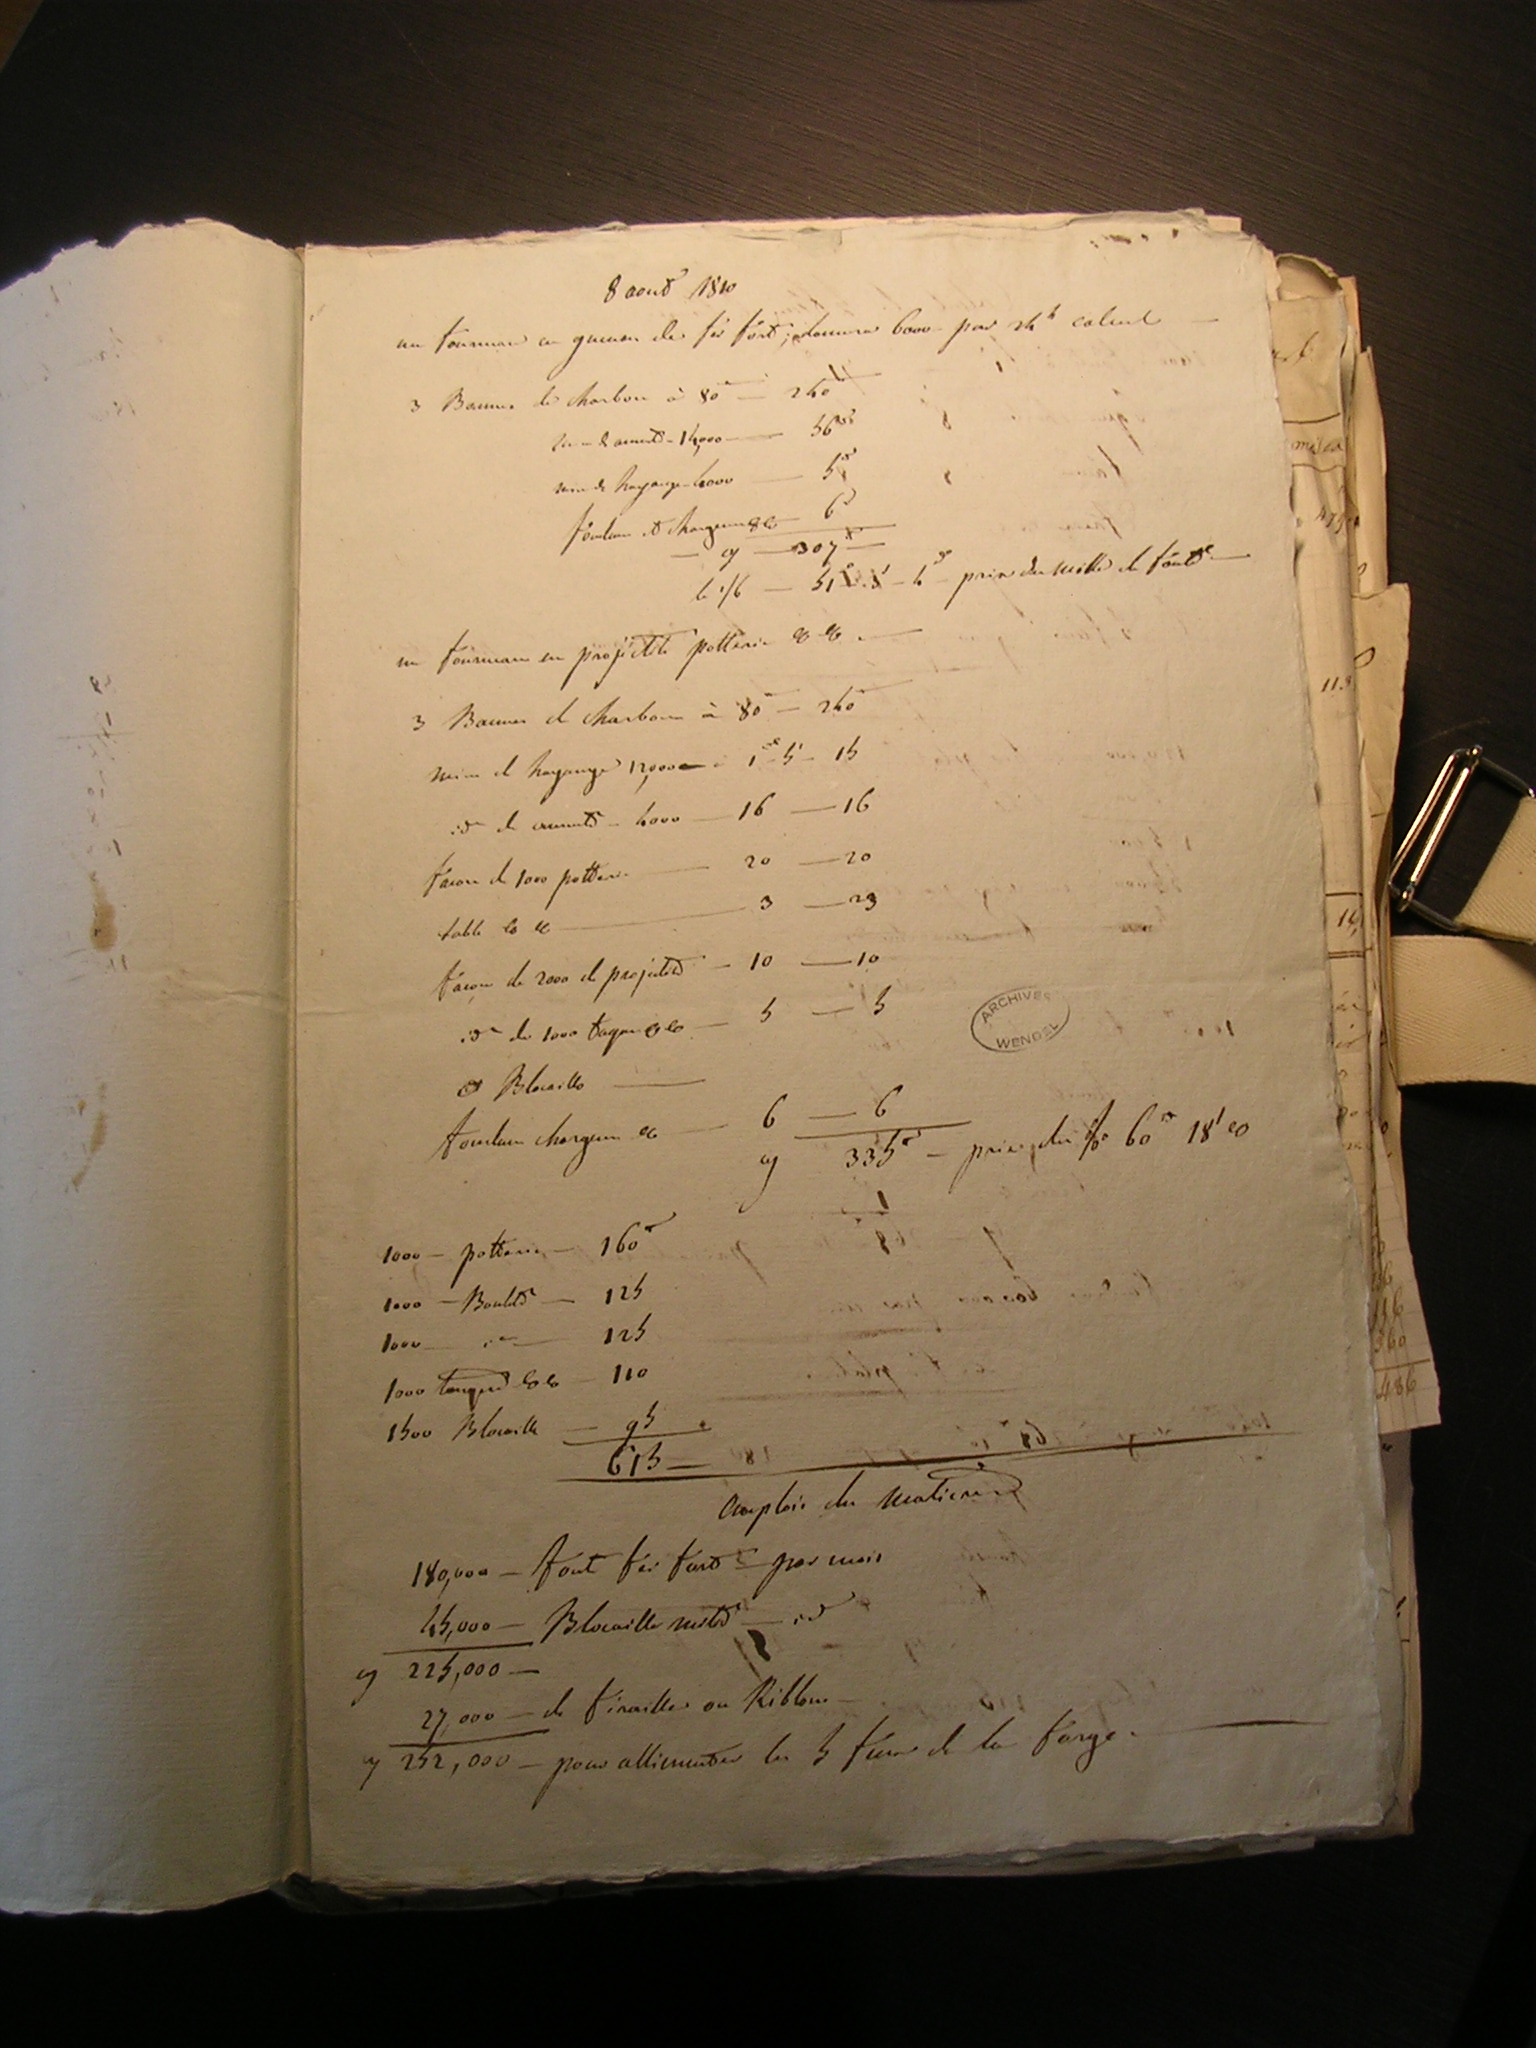 8 aout 1810
un fourneau en gueuse de fer fort, donnera 6000 par 24h calcul
3 Bannes de charbon à 80 — 240
mine d'aumetz — 14,000 — 56
mine de hayange 4000 — 5
fondeur et chargeurs &c — 6
— 307
le 1/6 — 51 — prix du mille de fonte
un fourneau en projectile potterie &c &c
3 Bannes de charbon à 80 — 240
mine de hayange 12,000 à 1 5 — 15
id de aumetz — 4000 — 16 — 16
façon de 1000 potterie — 20 — 20
sable &c &c — 3 — 23
façon de 2000 de projectile — 10 — 10
id de 1000 taque &c — 5 — 5
et Blocaille
fondeur chargeur &c — 6 — 6
335 — prix du 60 18
1000 — potterie — 160
1000 — Boulets — 125
1000 — id — 125
1000 taques &c &c — 110
1500 Blocaille — 95
615
emploie des matieres
180,000 — fonte fer fort par mois
45,000 — Blocaille — id
225,000 —
27,000 — de Ferraille ou Riblons —
252,000 — pour allimenter les 5 feux de la forge.
ARCHIVES
WENDEL
113
486